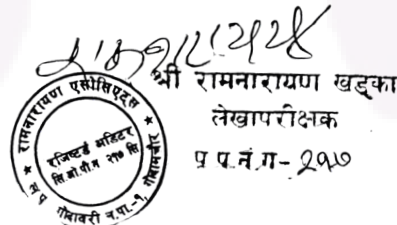 श्री रामनारायण खड्का
लेखापरीक्षक
प्र.प.नं.ग- २१७
रामनारायण एसोसिएट्स
रजिष्टर्ड अडिटर
सि.ओ.पी.न २१७ सि
गोदावरी न.पा.-१,